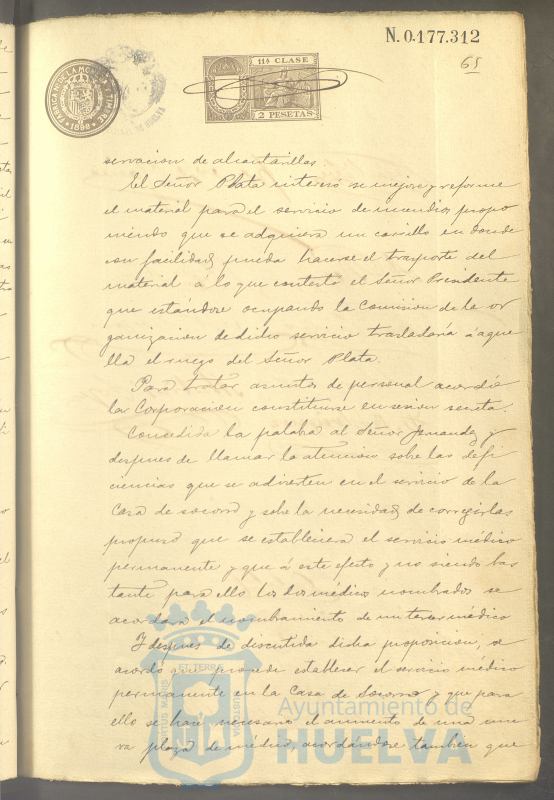 N. 0.177.312
65
FABRICA N. DE LA MONEDA Y TIMBRE
* 1898 *
11ª CLASE
2 PESETAS
servacion de alcantarillas
El Señor Plata interesó se mejore y reforme
el material para el servicio de incendios propo
niendo que se adquiera un carrillo en donde
con facilidad pueda hacerse el trasporte del
material á lo que contestó el Señor Presidente
que estándose ocupando la Comision de la or
ganizacion de dicho servicio trasladaría á aque
lla el ruego del Señor Plata.
Para tratar asuntos de personal acordó
la Corporacion constituirse en sesion secreta.
Concedida la palaba al Señor y
despues de llamar la atencion sobre las defi
ciencias que se advierten en el servicio de la
Casa de socorro y sobe la necesidad de corregirlas
propuso que se estableciera el servicio médico
permanente y que á este efecto y no siendo bas
tante para ello los dos médicos nombrados se
acordara el nombramiento de un tercer médico
Y despues de discutida dicha proposicion, se
acordó que procede establecer el servicio médico
permanente en la Casa de Socorro y que para
ello se hace necesario el aumento de una nue
va plaza de médico, acordándose tambien que
PORTUS MARIS ET TERRE CUSTODIA
Ayuntamiento de
HUELVA